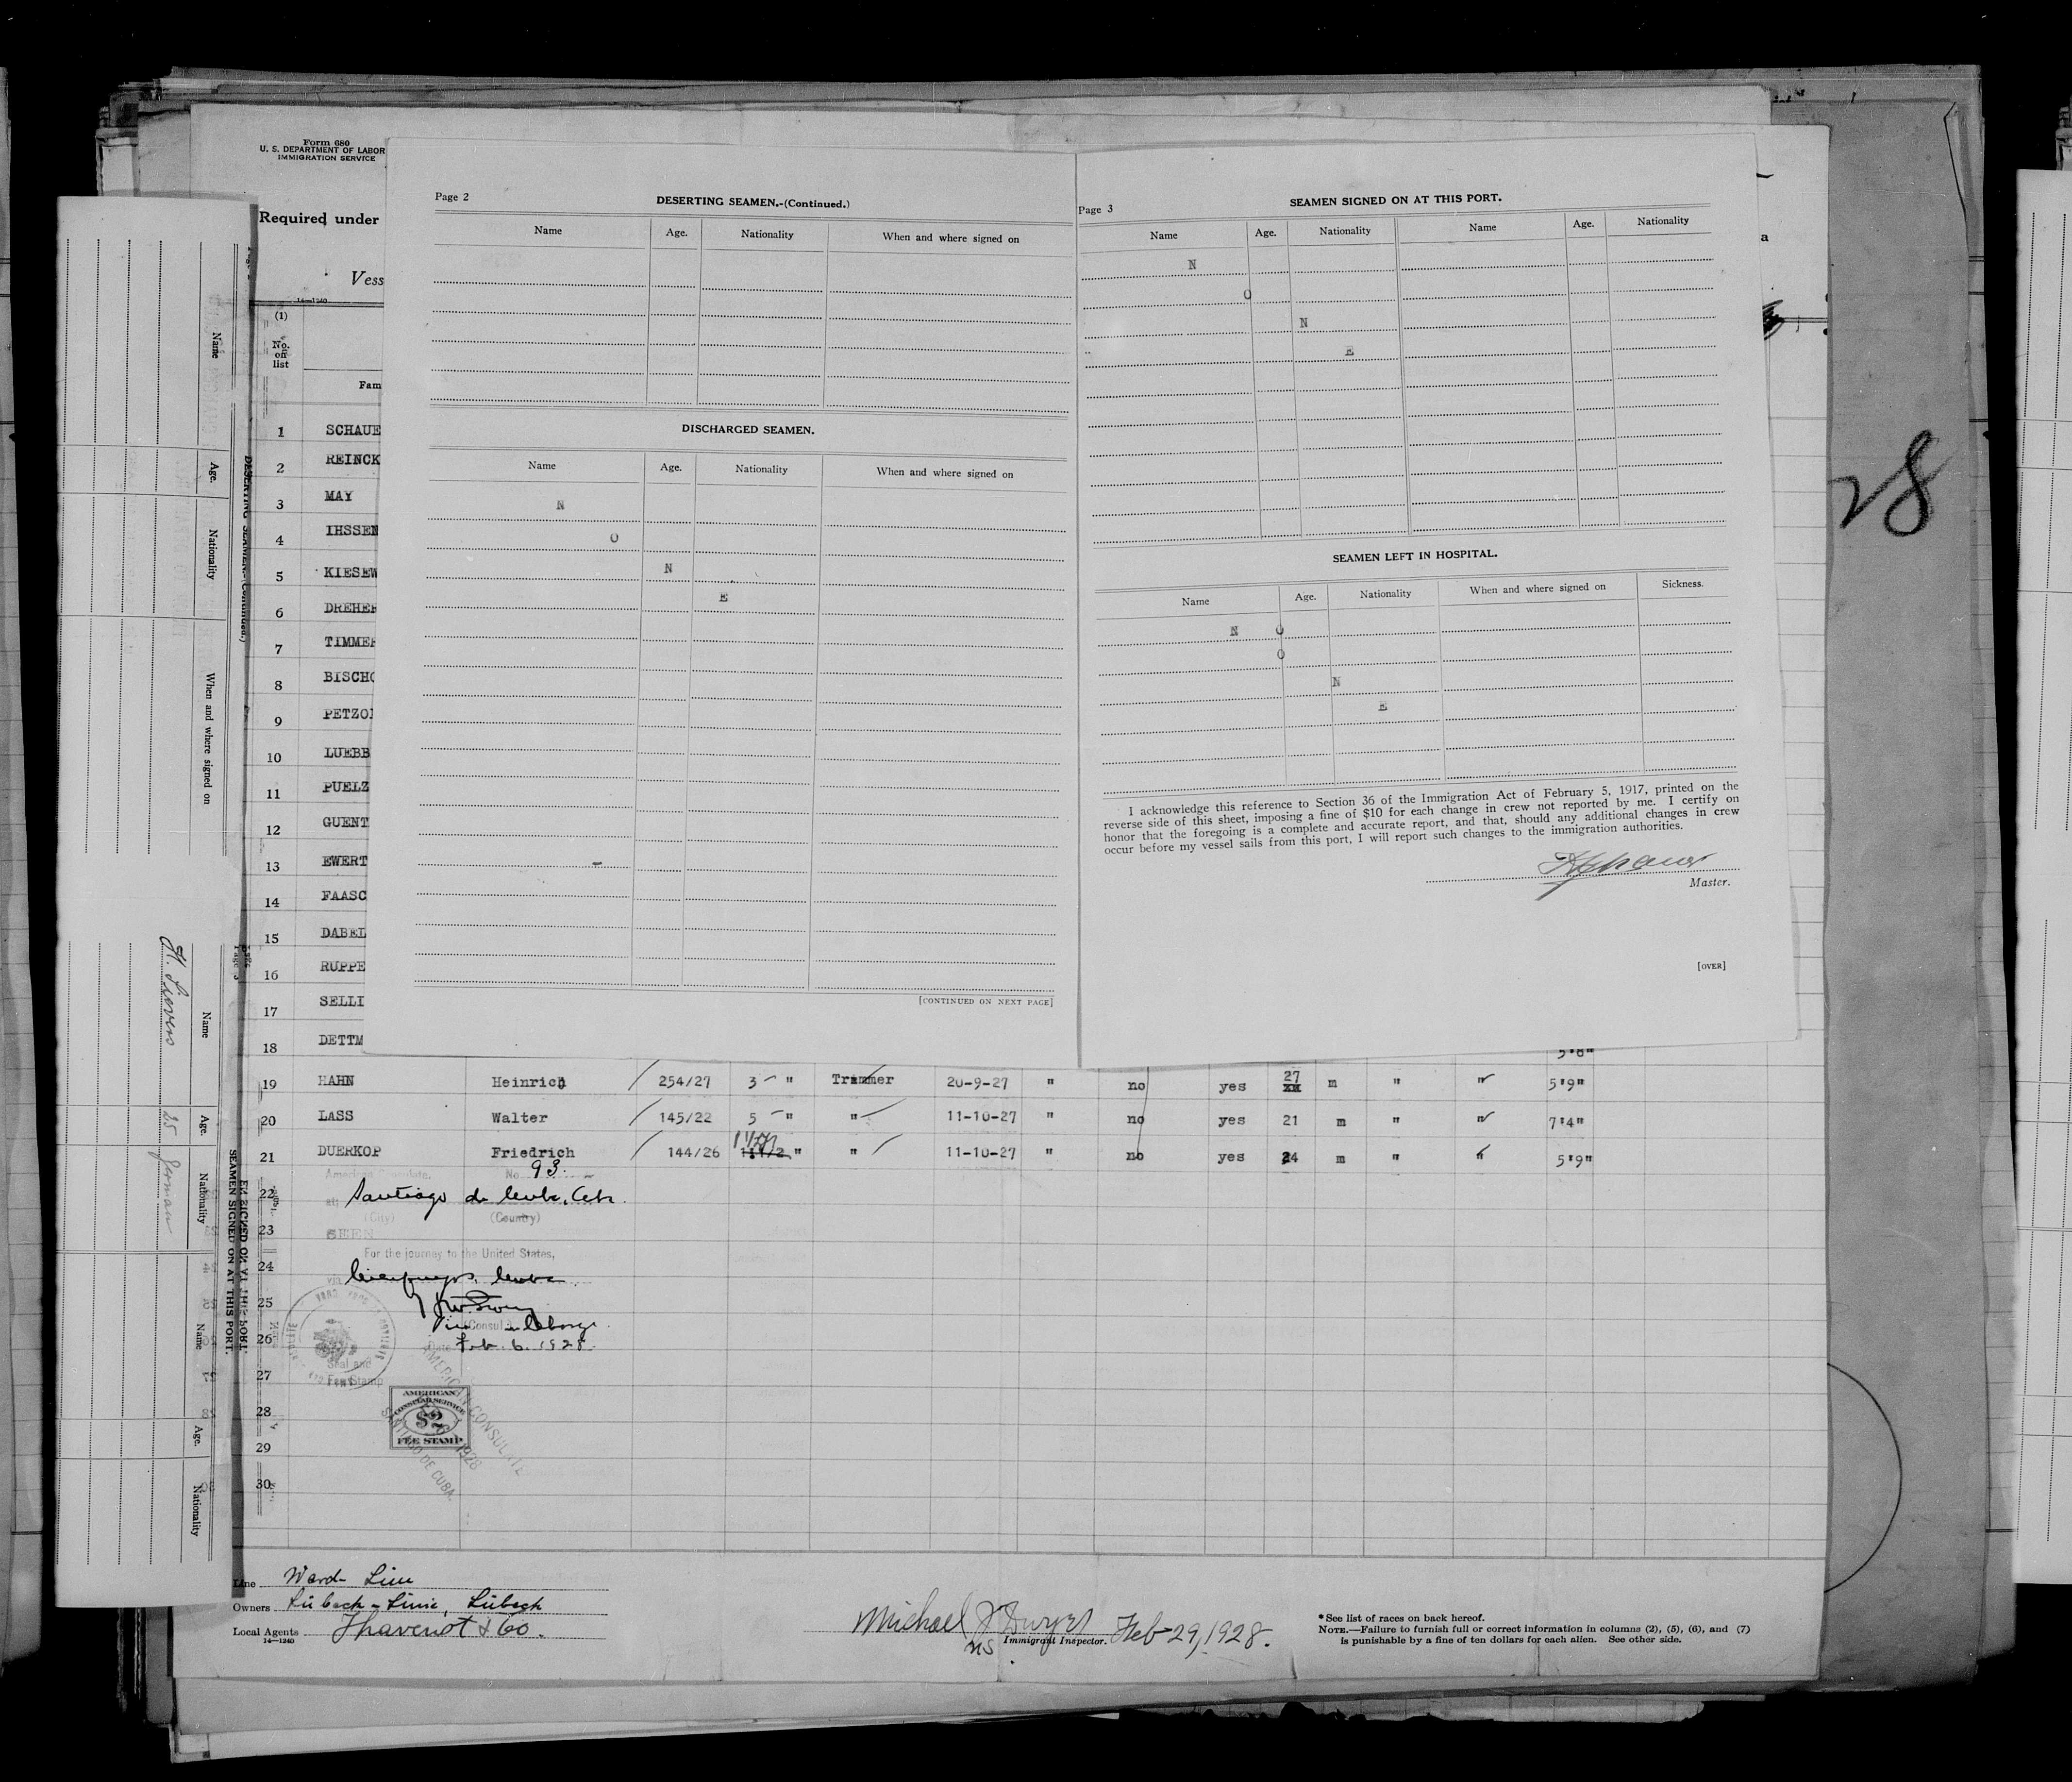 Form 680
U. S. DEPARTMENT OF LABOR
IMMIGRATION SERVICE
Required under
Vess
14—1240
(1)
No. on list
Fam
1 SCHAUE
2 REINCK
3 MAY
4 IHSSEN
5 KIESEW
6 DREHER
7 TIMMER
8 BISCHO
9 PETZOL
10 LUEBB
11 PUELZ
12 GUENT
13 EWERT
14 FAASC
15 DABEL
16 RUPPE
17 SELLI
18 DETTM 5'8"
19 HAHN Heinrich 254/27 3 " Trimmer 20-9-27 " no yes 27 xx m " " 5'9"
20 LASS Walter 145/22 5 " " 11-10-27 " no yes 21 m " " 7'4"
21 DUERKOP Friedrich 144/26 " " 11-10-27 " no yes 24 m " " 5'9"
22
23
24
25
26
27
28
29
30
Page 2
DESERTING SEAMEN.-(Continued.)
Name Age. Nationality When and where signed on
DISCHARGED SEAMEN.
Name Age. Nationality When and where signed on
N
O
N
E
[CONTINUED ON NEXT PAGE]
Page 3
SEAMEN SIGNED ON AT THIS PORT.
Name Age. Nationality Name Age. Nationality
N
O
N
E
SEAMEN LEFT IN HOSPITAL.
Name Age. Nationality When and where signed on Sickness.
N O
O
N
E
I acknowledge this reference to Section 36 of the Immigration Act of February 5, 1917, printed on the
reverse side of this sheet, imposing a fine of $10 for each change in crew not reported by me. I certify on
honor that the foregoing is a complete and accurate report, and that, should any additional changes in crew
occur before my vessel sails from this port, I will report such changes to the immigration authorities.
Master.
[OVER]
28
a
American Consulate,
No. 93.
at Santiago de Cuba, Cuba
(City) (Country)
SEEN
For the journey to the United States,
via Cienfuegos, Cuba
(Consul)
Date Feb. 6. 1928.
Seal and
Fee Stamp
AMERICAN
CONSULAR SERVICE
$2
FEE STAMP
AMERICAN CONSULATE
1928
SANTIAGO DE CUBA.
Line Ward- Line
Owners Lübeck-Linie, Lübeck
Local Agents Thavenot & Co.
14—1240
Michael J Dwyer Feb 29, 1928.
Immigrant Inspector.
*See list of races on back hereof.
NOTE.—Failure to furnish full or correct information in columns (2), (5), (6), and (7)
is punishable by a fine of ten dollars for each alien. See other side.
DESERTING SEAMEN.-(Continued.)
Name Age. Nationality When and where signed on
Page 3
SEAMEN SIGNED ON AT THIS PORT.
Name Age. Nationality Name Age. Nationality
H. Sievers 25 German